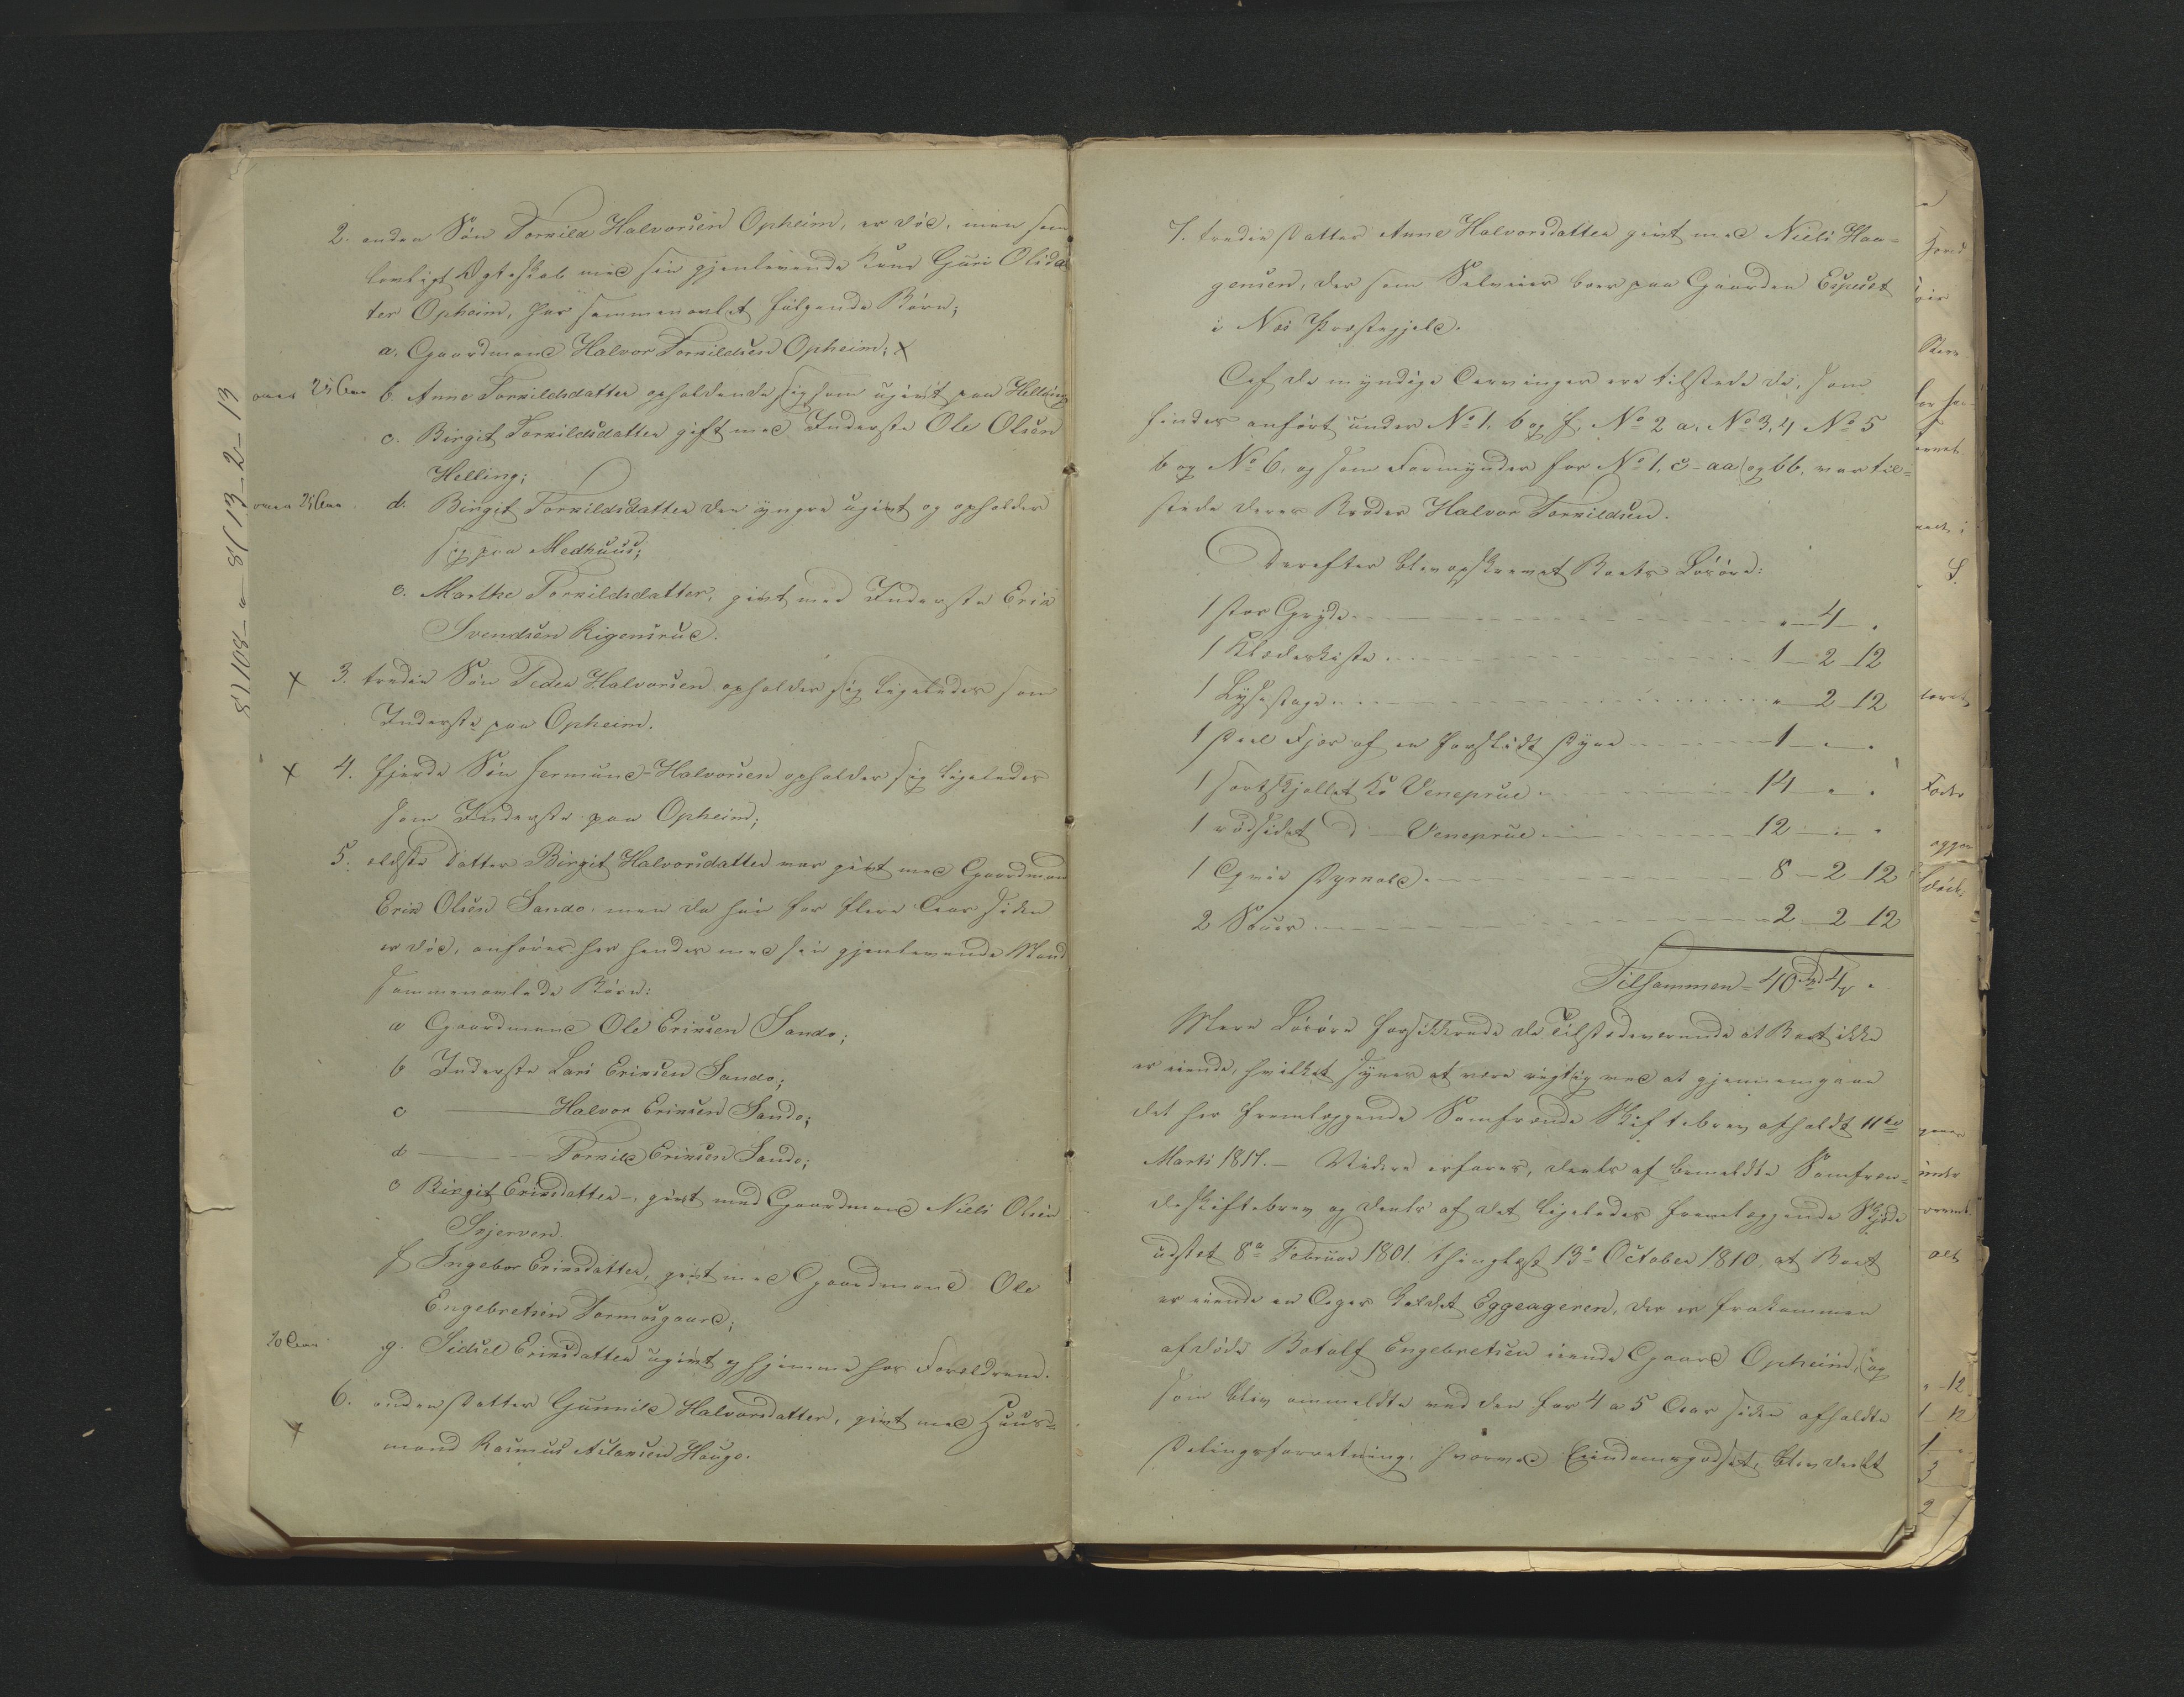 2. anden Søn Torkild Halvorsen Opheim, er død, men som
lovligt Ægteskab med sin gjenlevende Kone Guri Olsdat
ter Opheim, har sammenavlet følgende Børn;
a. Gaardmand Halvor Torkildsen Opheim; x
over 25 Aar b. Anne Torkildsdatter opholdende sig som ugivt paa Helling
c. Birgit Torkildsdatter gift med Inderste Ole Olsen
Helling;
over 25 Aar d. Birgit Torkildsdatter den yngre ugivt og opholder
sig paa Medhuus;
e. Marthe Torkildsdatter, givt med Inderste Erik
Svendsen Rigensrud.
x 3. tredie Søn Peder Halvorsen opholder sig ligeledes som
Inderste paa Opheim.
x 4. fjerde Søn Hermund Halvorsen opholder sig ligeledes
som Inderste paa Opheim;
5. ældste Datter Birgit Halvorsdatter var givt med Gaardmand
Erik Olsen Sando, men da hun for flere Aar siden
er død, anføres her hendes med sin gjenlevende Mand
sammenavlede Børn:
a Gaardmand Ole Eriksen Sando;
b Inderste Lars Eriksen Sando;
c ——— Halvor Eriksen Sando;
d ——— Torkild Eriksen Sando;
e Birgit Eriksdatter, givt med Gaardmand Niels Olsen
Skjerven.
f Ingebor Eriksdatter, givt med Gaardmand Ole
Engebretsen Tormosgaard;
20 Aar g. Sidsel Eriksdatter ugivt og hjemme hos Forældrene.
x 6. anden Datter Gunnild Halvorsdatter, givt med Huus=
mand Rasmus Aslaksen Haugo.
8) 108 - a - 8 (13-2-13
7. tredie Datter Anne Halvorsdatter givt med Niels Haa=
gensen, der som Selveier boer paa Gaarden Espeset
i Næs Præstegjeld.
Af de myndige Arvinger ere tilstede de, som
findes anført under No 1, b og f, No 2 a, No 3, 4 No 5
b og No 6, og som Formynder for No 1, c - aa og bb, var til=
stede deres Broder Halvor Torkildsen.
Derefter blev opskrevet Boets Løsøre:
1 stor Gryde " 4 "
1 Klædeskiste 1 - 2 - 12
1 Lysestage " - 2 - 12
1 Deel Fjær af en forslidt Dyne 1 - " - "
1 sortskjollet Ko Veneprud 14 - " - "
1 rødsidet d - Veneprud 12 - " - "
1 Qvie Dyrvold 8 - 2 - 12
2 Souer 2 - 2 - 12
Tilsammen = 40 Spd 4 "
Mere Løsøre forsikkrede de Tilstedeværende at Boet ikke
er eiende, hvilket synes at være rigtig ved at gjennemgaae
det her fremlæggende Samfrænde Skiftebrev afholdt 11te
Marts 1817. — Videre erfares, deels af bemeldte Samfræn=
deskiftebrev og deels af det ligeledes fremlæggende Skjøde
udstet 8de Februar 1801. thinglæst 13de October 1810. at Boet
er eiende en Ager kaldet Eggeageren, der er frakommen
afdøde Botolf Engebretsen eiende Gaard Opheim, og
som blev anmeldte ved den for 4 a 5 Aar siden afholdte
Delingsforretning, hvorved Eiendomsgodset, blev deelt